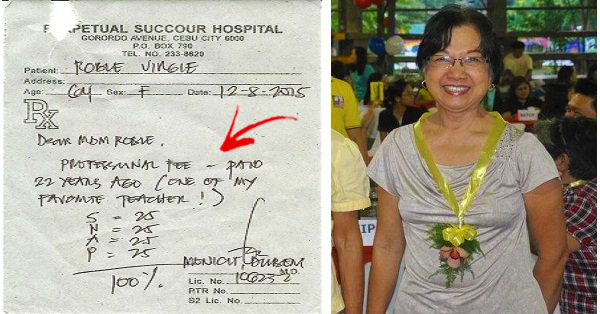 PERPETUAL SUCCOUR HOSPITAL
GORORDO AVENUE, CEBU CITY 6000
P.O. BOX 790
TEL. NO. 233-8620
Patient: ROBLE VIRGIE
Address:
Age: 60y Sex: F Date: 12-8-2015
Rx
Dear MDM ROBLE,
PROFESSIONAL FEE - PAID
22 YEARS AGO (ONE OF MY
FAVORITE TEACHER!)
S = 25
N = 25
A = 25
P = 25
100%.
M.D.
Lic. No. 10623-2
PTR No.
S2 Lic. No.